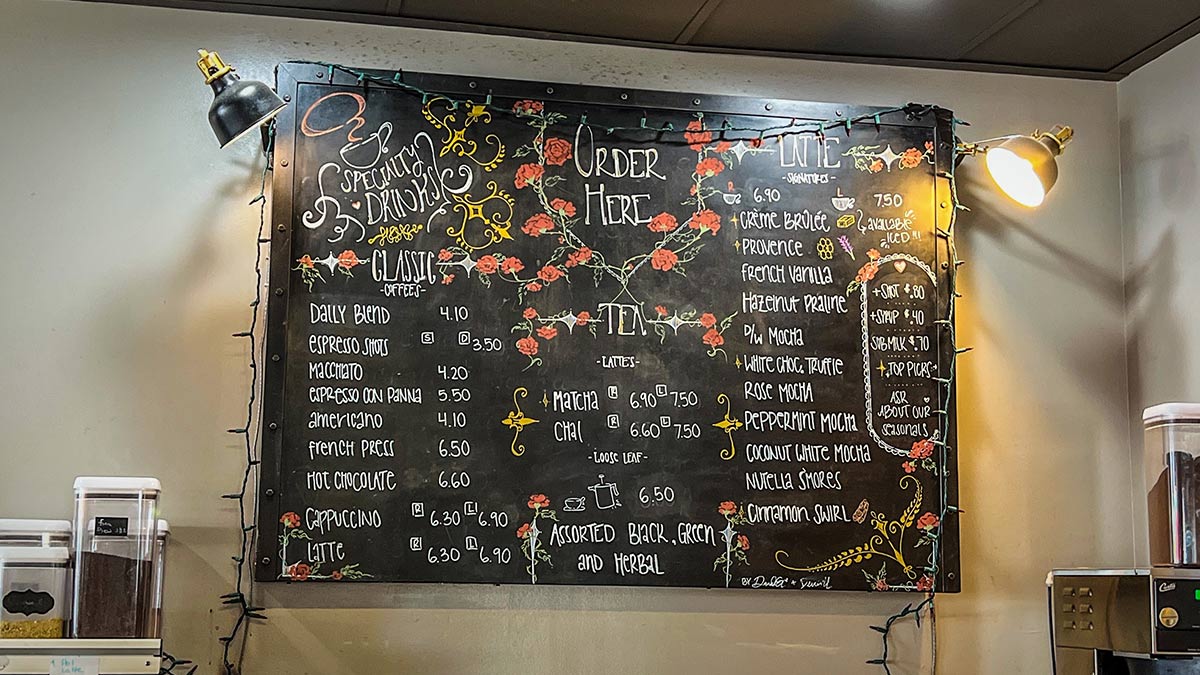 SPECIALTY
DRINKS
CLASSIC
-COFFEES-
DAILY BLEND 4.10
ESPRESSO SHOTS S D 3.50
MACCHIATO 4.20
ESPRESSO CON PANNA 5.50
AMERICANO 4.10
FRENCH PRESS 6.50
HOT CHOCOLATE 6.60
CAPPUCCINO R 6.30 L 6.90
LATTE R 6.30 L 6.90
ORDER
HERE
TEA
-LATTES-
MATCHA R 6.90 L 7.50
CHAI R 6.60 L 7.50
-LOOSE LEAF-
6.50
ASSORTED BLACK, GREEN
AND HERBAL
LATTE
-SIGNATURES-
6.90 7.50
CRÈME BRÛLÉE
PROVENCE
FRENCH VANILLA
HAZELNUT PRALINE
D/W MOCHA
WHITE CHOC. TRUFFLE
ROSE MOCHA
PEPPERMINT MOCHA
COCONUT WHITE MOCHA
NUTELLA S'MORES
CINNAMON SWIRL
AVAILABLE
ICED!!!
+SHOT $.80
+SYRUP $.40
SUB MILK $.70
TOP PICKS
ASK
ABOUT OUR
SEASONALS
BY
Curtis